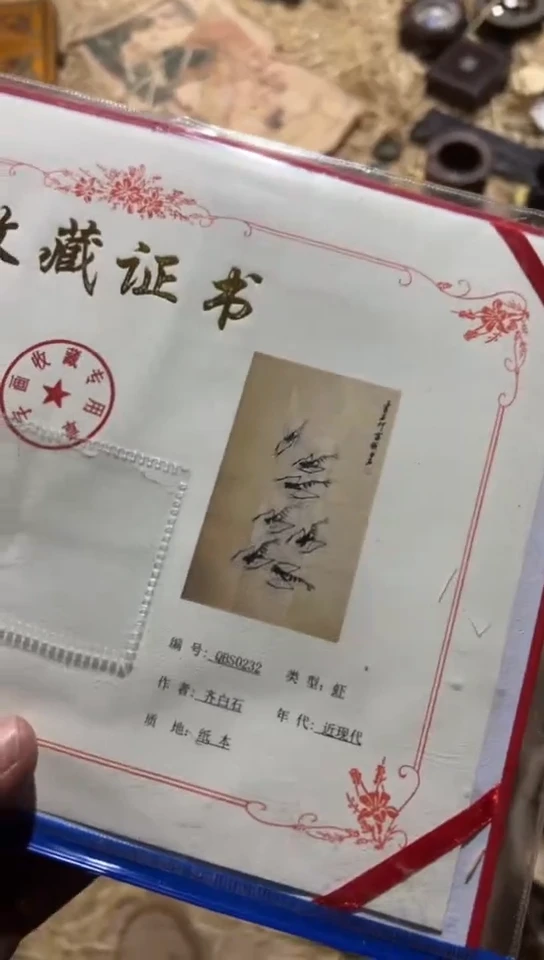 收藏证书
字画收藏专用章
编 号: QBS0232 类 型: 虾
作 者: 齐白石 年 代: 近现代
质 地: 纸 本